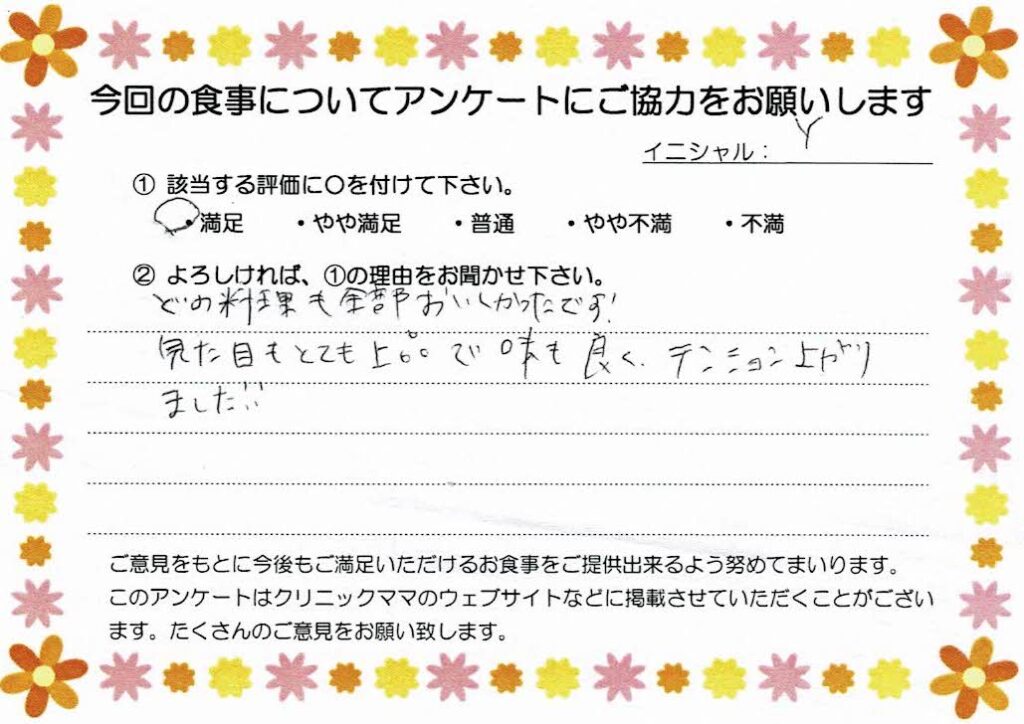 今回の食事についてアンケートにご協力をお願いします
イニシャル： Y
① 該当する評価に〇を付けて下さい。
・満足 ・やや満足 ・普通 ・やや不満 ・不満
② よろしければ、①の理由をお聞かせ下さい。
どの料理も全部おいしかったです!
見た目もとても上品で味も良く、テンション上がり
ました!!
ご意見をもとに今後もご満足いただけるお食事をご提供出来るよう努めてまいります。
このアンケートはクリニックママのウェブサイトなどに掲載させていただくことがござい
ます。たくさんのご意見をお願い致します。